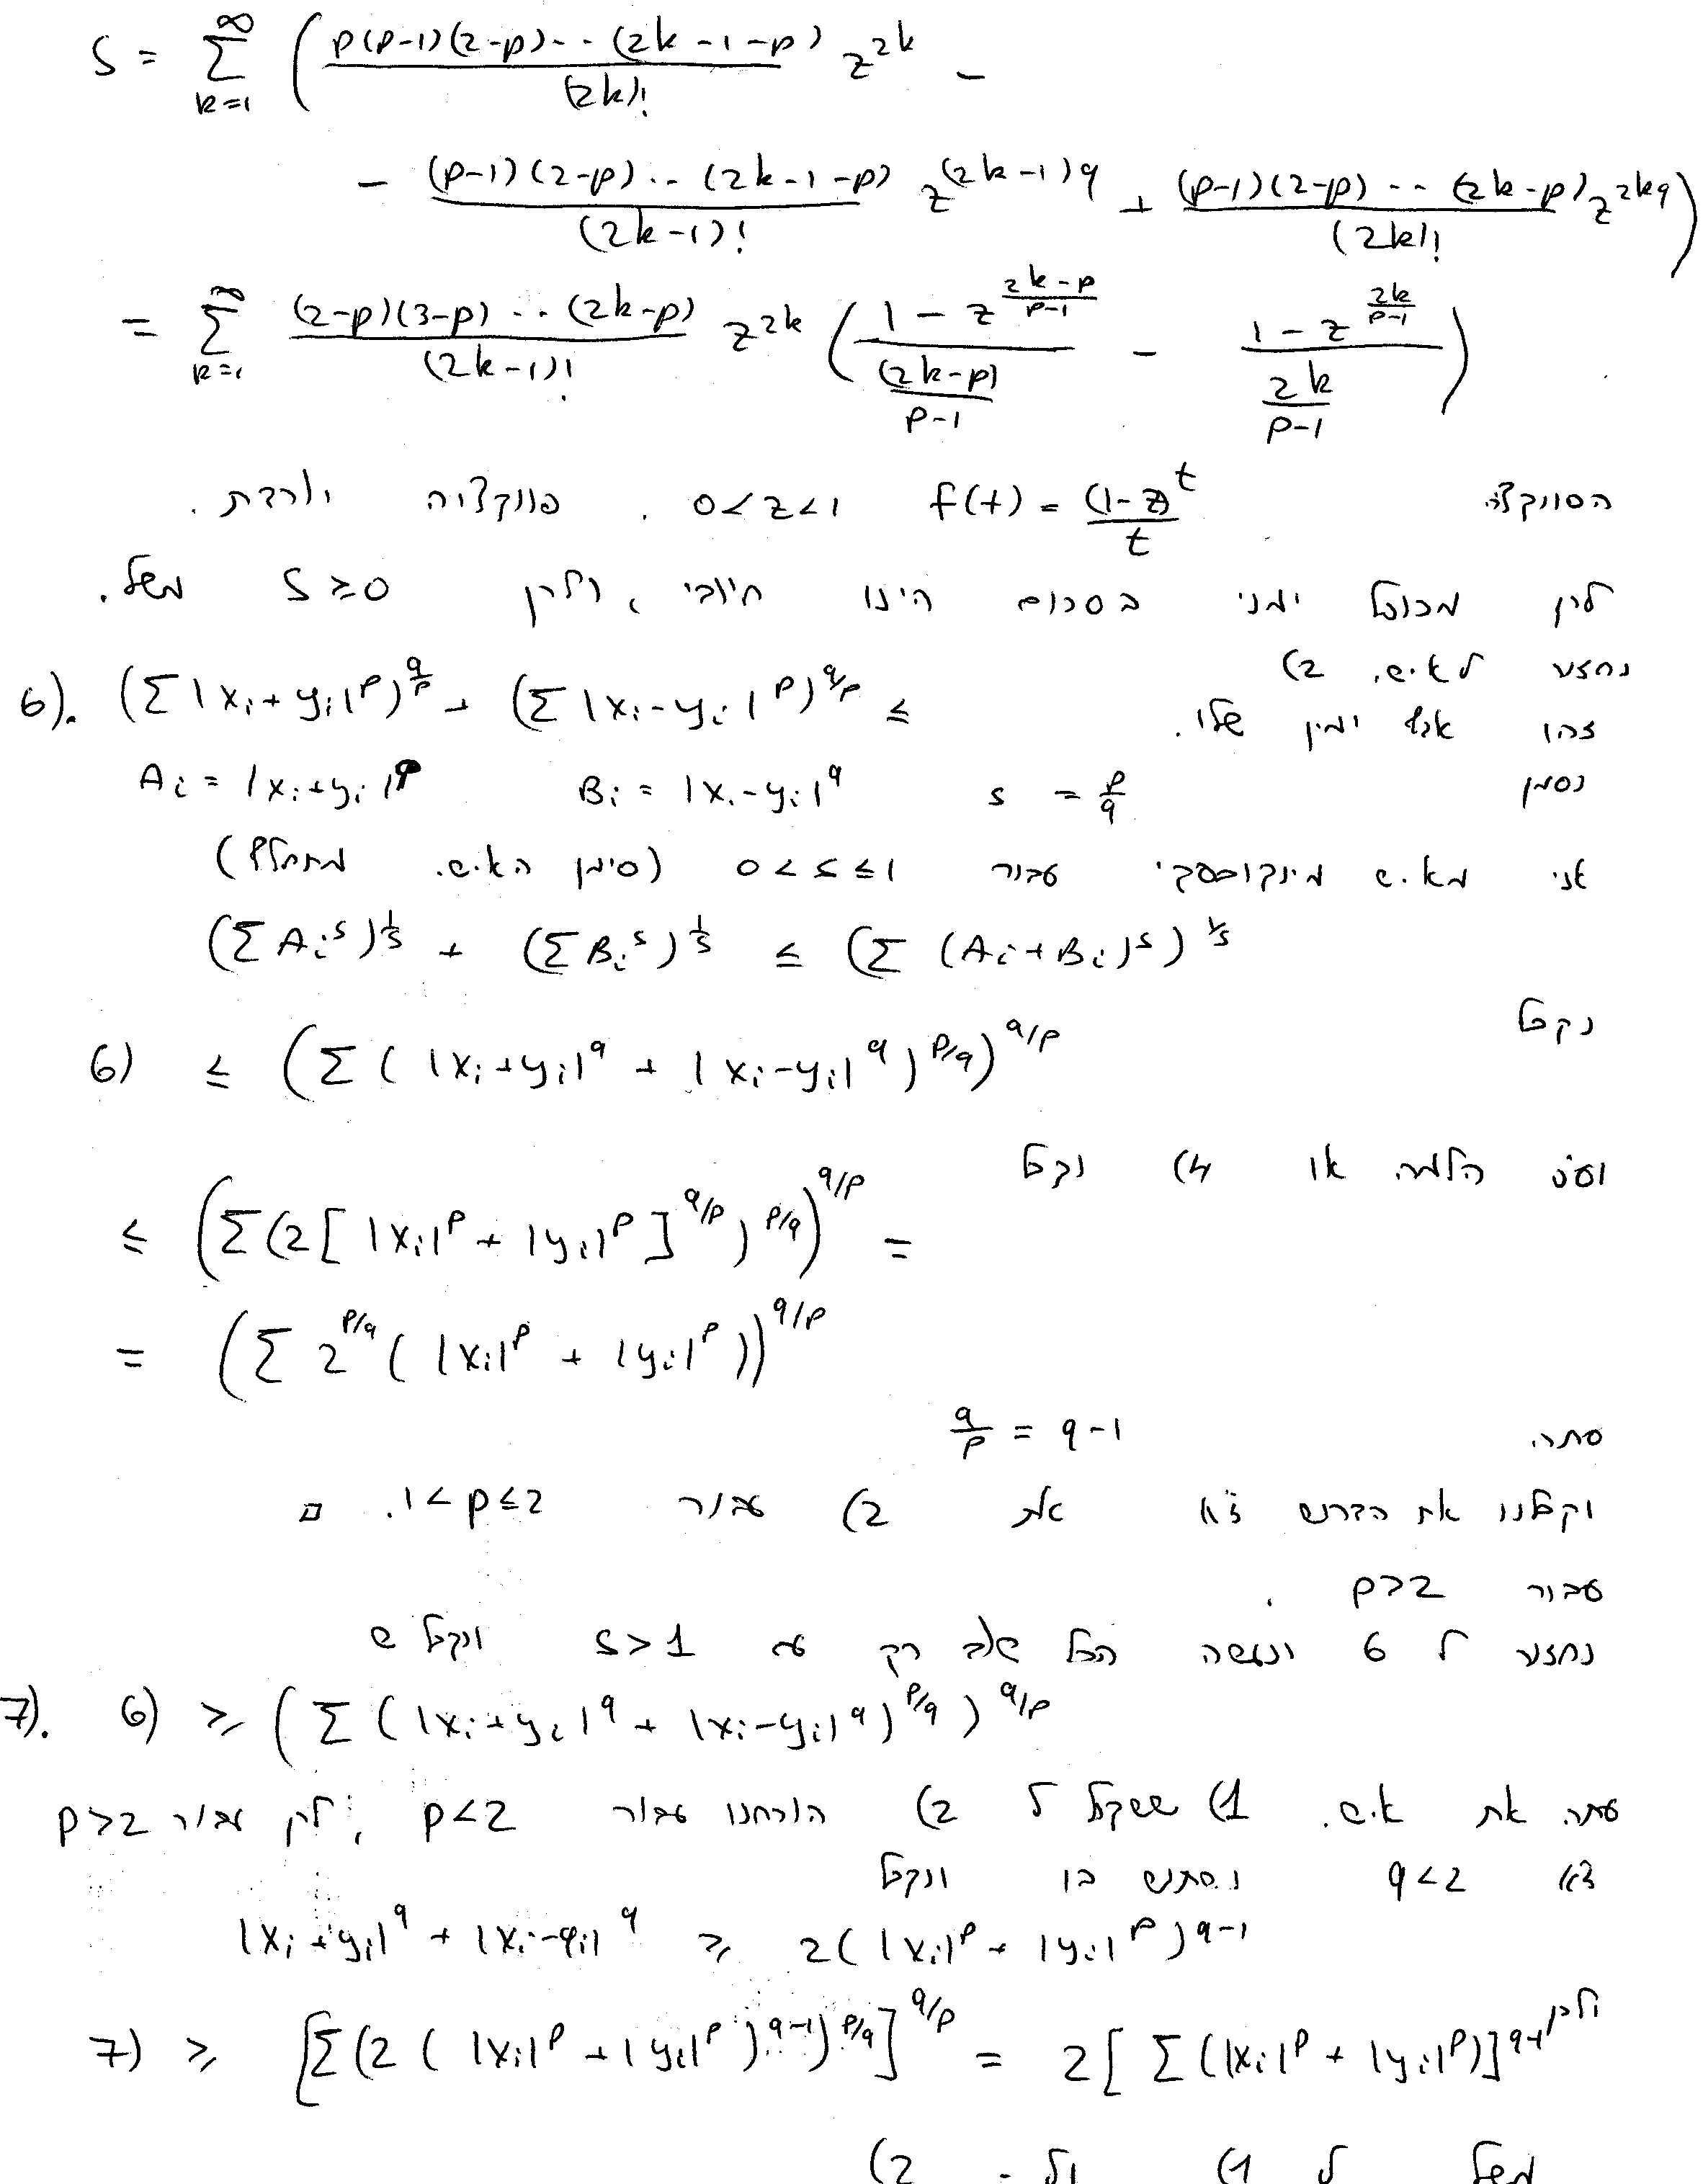 S = \sum_{k=1}^{\infty} ( \frac{p(p-1)(2-p)...(2k-1-p)}{(2k)!} z^{2k} -
- \frac{(p-1)(2-p)...(2k-1-p)}{(2k-1)!} z^{(2k-1)q} + \frac{(p-1)(2-p)...(2k-p)}{(2k)!} z^{2kq} )
= \sum_{k=1}^{\infty} \frac{(2-p)(3-p)...(2k-p)}{(2k-1)!} z^{2k} ( \frac{1-z^{\frac{2k-p}{p-1}}}{\frac{(2k-p)}{p-1}} - \frac{1-z^{\frac{2k}{p-1}}}{\frac{2k}{p-1}} )
הפונקציה f(t) = \frac{(1-z)^t}{t} 0<z<1 . פונקציה יורדת .
לכן מכופל ימני בסכום הינו חיובי , ולכן S ≥ 0 משל.
נחזור לאי.ש. 2)
זהו אגף ימין שלו.
6). (\sum |x_i+y_i|^p)^{\frac{q}{p}} + (\sum |x_i-y_i|^p)^{q/p} ≤
נסמן A_i = |x_i+y_i|^q B_i = |x_i-y_i|^q s = \frac{p}{q}
אני מא.ש מינקובסקי עבור 0<s≤1 (סימן הא.ש. מתחלף)
(\sum A_i^s)^{\frac{1}{s}} + (\sum B_i^s)^{\frac{1}{s}} ≤ (\sum (A_i+B_i)^s)^{1/s}
נקבל
6) ≤ (\sum ( |x_i+y_i|^q + |x_i-y_i|^q )^{p/q})^{q/p}
ועפ הלמה או 4) נקבל
≤ (\sum (2[ |x_i|^p + |y_i|^p ]^{q/p})^{p/q})^{q/p} =
= (\sum 2^{p/q} ( |x_i|^p + |y_i|^p ))^{q/p}
עתה \frac{q}{p} = q-1
וקבלנו את הדרוש ז"א את 2) עבור 1<p≤2. □
עבור p>2 .
נחזור ל 6 ונעשה הכל אלא רק עם s>1 ונקבל ש
7). 6) ≥ (\sum ( |x_i+y_i|^q + |x_i-y_i|^q )^{p/q} )^{q/p}
עתה את אי.ש. 1) ששקול ל 2) הוכחנו עבור p<2 , לכן עבור p>2
ז"א q<2 נשתמש בו ונקבל
|x_i+y_i|^q + |x_i-y_i|^q ≥ 2( |x_i|^p + |y_i|^p )^{q-1}
ולכן
7) ≥ [\sum (2 ( |x_i|^p + |y_i|^p )^{q-1})^{p/q}]^{q/p} = 2[ \sum (|x_i|^p + |y_i|^p)]^{q-1}
משל ל 1) ול - 2)